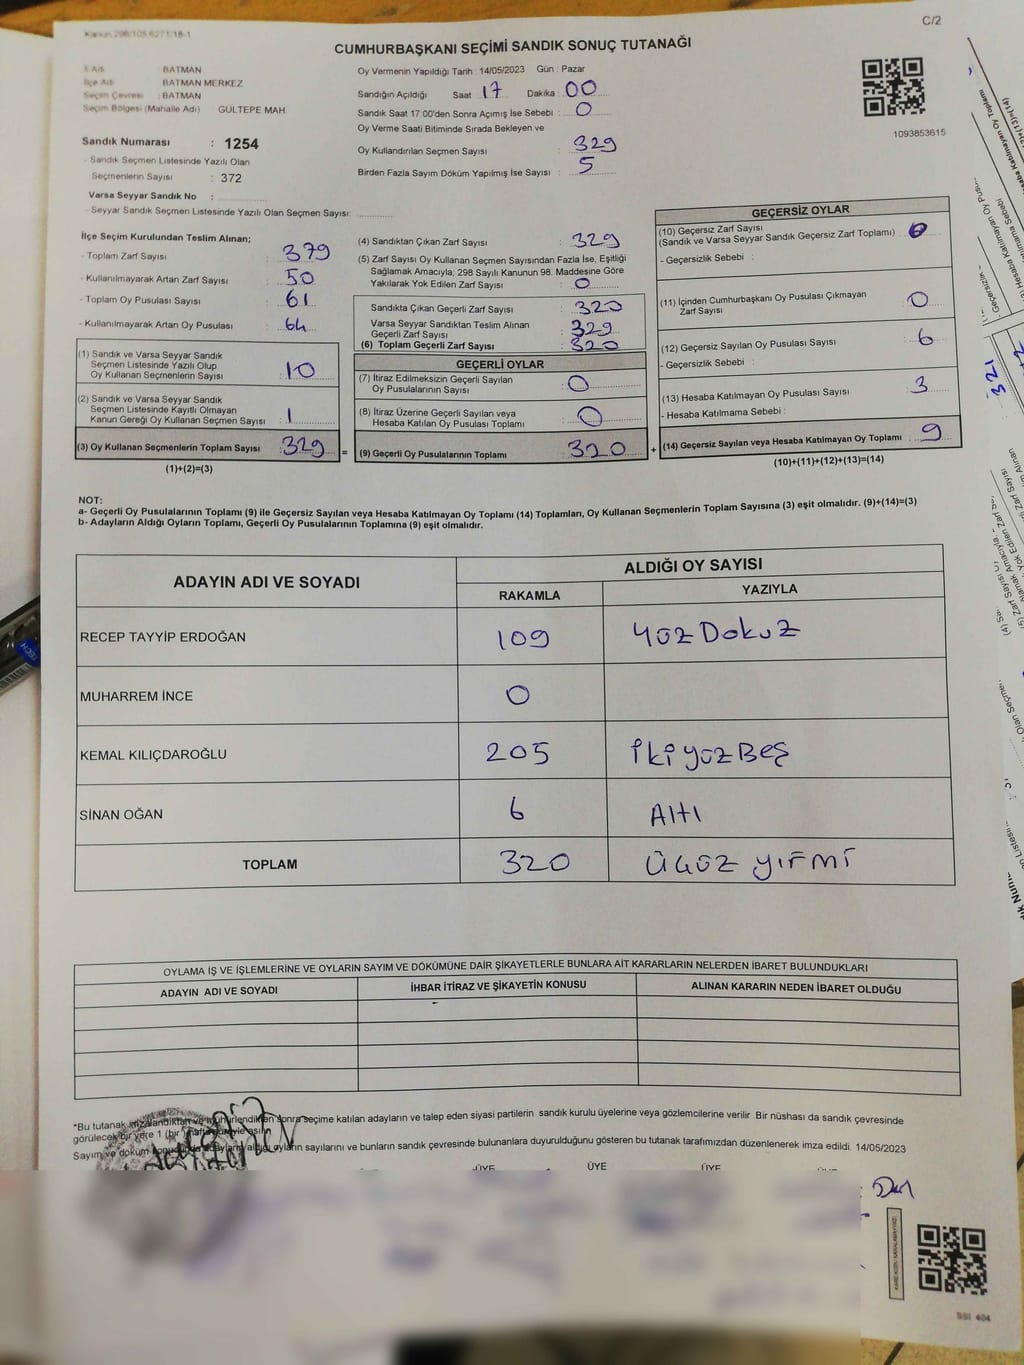 C/2
Kanun 298/105 6271/18-1
CUMHURBAŞKANI SEÇİMİ SANDIK SONUÇ TUTANAĞI
İl Adı : BATMAN
İlçe Adı : BATMAN MERKEZ
Seçim Çevresi : BATMAN
Seçim Bölgesi (Mahalle Adı) GÜLTEPE MAH.
Sandık Numarası : 1254
- Sandık Seçmen Listesinde Yazılı Olan
Seçmenlerin Sayısı : 372
Varsa Seyyar Sandık No :
- Seyyar Sandık Seçmen Listesinde Yazılı Olan Seçmen Sayısı:
Oy Vermenin Yapıldığı Tarih : 14/05/2023 Gün : Pazar
Sandığın Açıldığı Saat 17 Dakika : 00
Sandık Saat 17:00'den Sonra Açımış İse Sebebi : 0
Oy Verme Saati Bitiminde Sırada Bekleyen ve
Oy Kullandırılan Seçmen Sayısı : 329
Birden Fazla Sayım Döküm Yapılmış İse Sayısı : 5
1093853615
İlçe Seçim Kurulundan Teslim Alınan;
- Toplam Zarf Sayısı : 379
- Kullanılmayarak Artan Zarf Sayısı : 50
- Toplam Oy Pusulası Sayısı : 61
- Kullanılmayarak Artan Oy Pusulası : 64
(1) Sandık ve Varsa Seyyar Sandık
Seçmen Listesinde Yazılı Olup
Oy Kullanan Seçmenlerin Sayısı : 10
(2) Sandık ve Varsa Seyyar Sandık
Seçmen Listesinde Kayıtlı Olmayan
Kanun Gereği Oy Kullanan Seçmen Sayısı : 1
(3) Oy Kullanan Seçmenlerin Toplam Sayısı : 329
(1)+(2)=(3)
=
(4) Sandıktan Çıkan Zarf Sayısı : 329
(5) Zarf Sayısı Oy Kullanan Seçmen Sayısından Fazla İse, Eşitliği
Sağlamak Amacıyla; 298 Sayılı Kanunun 98. Maddesine Göre
Yakılarak Yok Edilen Zarf Sayısı : 0
Sandıkta Çıkan Geçerli Zarf Sayısı : 320
Varsa Seyyar Sandıktan Teslim Alınan
Geçerli Zarf Sayısı : 329
(6) Toplam Geçerli Zarf Sayısı : 320
GEÇERLİ OYLAR
(7) İtiraz Edilmeksizin Geçerli Sayılan
Oy Pusulalarının Sayısı : 0
(8) İtiraz Üzerine Geçerli Sayılan veya
Hesaba Katılan Oy Pusulası Toplamı : 0
(9) Geçerli Oy Pusulalarının Toplamı : 320
+
GEÇERSİZ OYLAR
(10) Geçersiz Zarf Sayısı
(Sandık ve Varsa Seyyar Sandık Geçersiz Zarf Toplamı) : 0
- Geçersizlik Sebebi :
(11) İçinden Cumhurbaşkanı Oy Pusulası Çıkmayan
Zarf Sayısı : 0
(12) Geçersiz Sayılan Oy Pusulası Sayısı : 6
- Geçersizlik Sebebi :
(13) Hesaba Katılmayan Oy Pusulası Sayısı : 3
- Hesaba Katılmama Sebebi :
(14) Geçersiz Sayılan veya Hesaba Katılmayan Oy Toplamı : 9
(10)+(11)+(12)+(13)=(14)
NOT:
a- Geçerli Oy Pusulalarının Toplamı (9) ile Geçersiz Sayılan veya Hesaba Katılmayan Oy Toplamı (14) Toplamları, Oy Kullanan Seçmenlerin Toplam Sayısına (3) eşit olmalıdır. (9)+(14)=(3)
b- Adayların Aldığı Oyların Toplamı, Geçerli Oy Pusulalarının Toplamına (9) eşit olmalıdır.
ADAYIN ADI VE SOYADI ALDIĞI OY SAYISI
RAKAMLA YAZIYLA
RECEP TAYYİP ERDOĞAN 109 YüzDokuz
MUHARREM İNCE 0
KEMAL KILIÇDAROĞLU 205 İkiyüzBeş
SİNAN OĞAN 6 Altı
TOPLAM 320 Üçüz yirmi
OYLAMA İŞ VE İŞLEMLERİNE VE OYLARIN SAYIM VE DÖKÜMÜNE DAİR ŞİKAYETLERLE BUNLARA AİT KARARLARIN NELERDEN İBARET BULUNDUKLARI
ADAYIN ADI VE SOYADI İHBAR İTİRAZ VE ŞİKAYETİN KONUSU ALINAN KARARIN NEDEN İBARET OLDUĞU
*Bu tutanak imzalandıktan ve mühürlendikten sonra seçime katılan adayların ve talep eden siyasi partilerin sandık kurulu üyelerine veya gözlemcilerine verilir. Bir nüshası da sandık çevresinde
görülecek bir yere 1 (bir) hafta süreyle asılır.
Sayım ve döküm sonucunda adayların aldığı oyların sayılarını ve bunların sandık çevresinde bulunanlara duyurulduğunu gösteren bu tutanak tarafımızdan düzenlenerek imza edildi. 14/05/2023
ÜYE ÜYE ÜYE
SSI 404
321